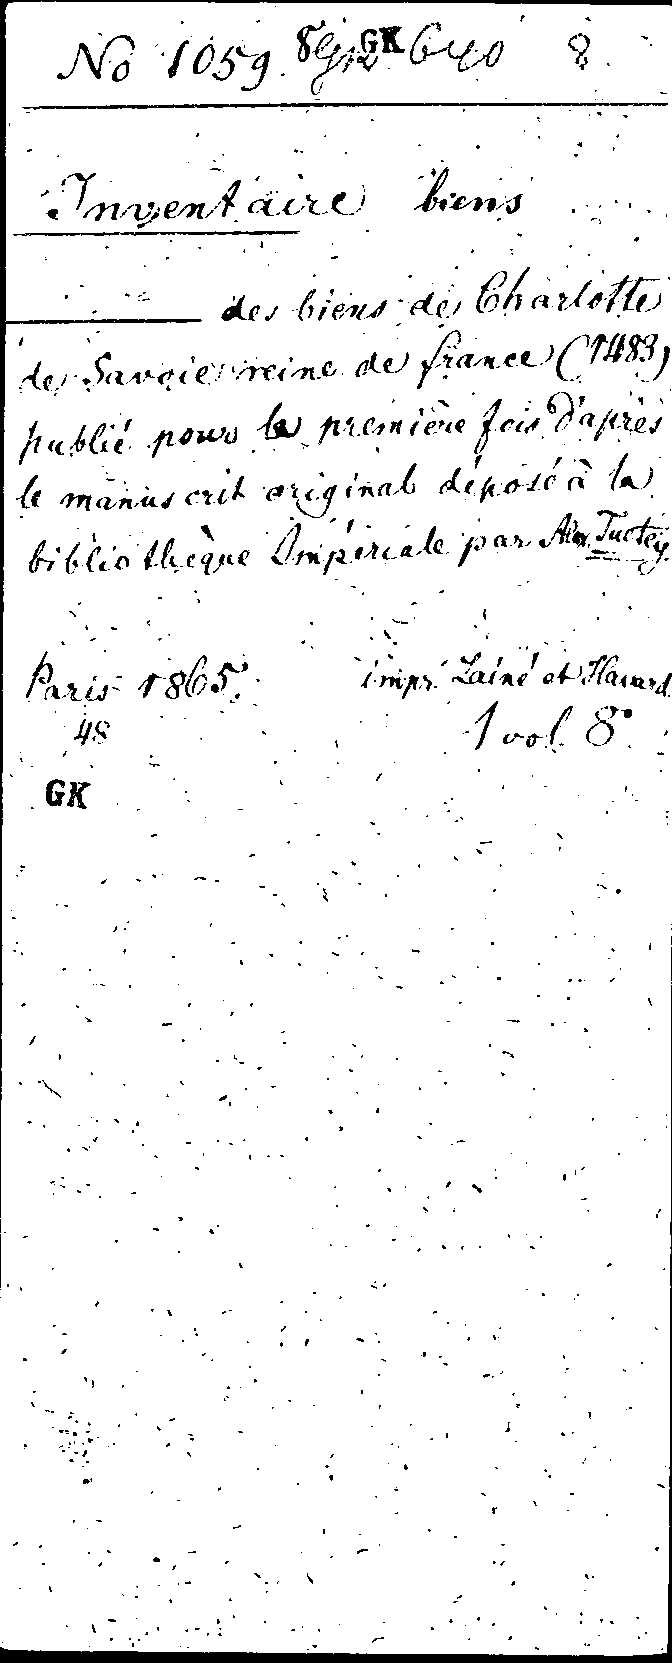 No 1059. 8 GK 640 8
Inventaire biens
des biens de Charlotte
de Savoie reine de france (1483)
publié pour la première fois d'après
le manuscrit original déposé à la
bibliothèque Impériale par Alex Tuetey.
Paris 1865. impr. Lainé et Havard
48 1 vol. 8°
GK